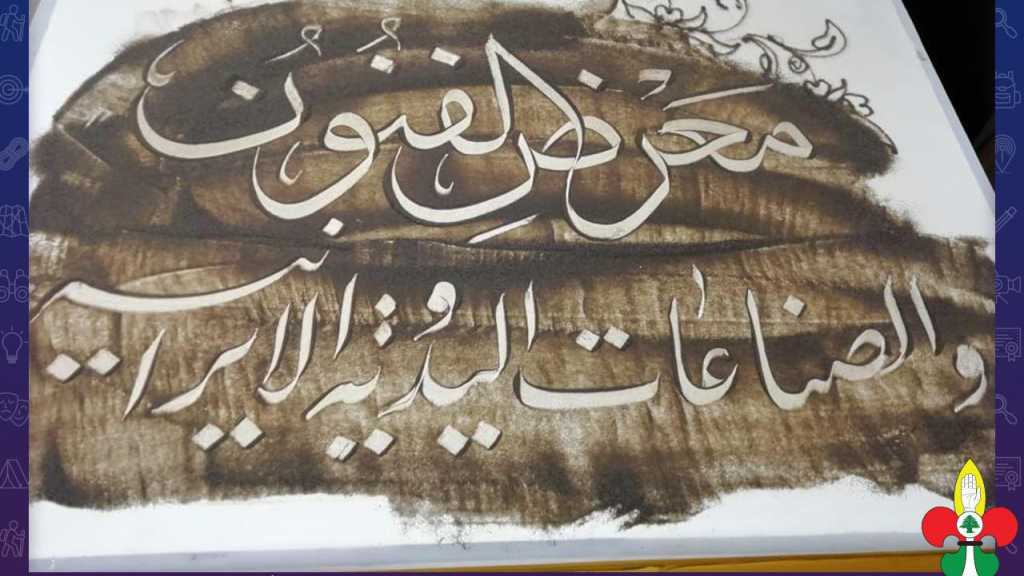 مَعْرَض الفُنُون
والصناعات اليدوية الايرانية